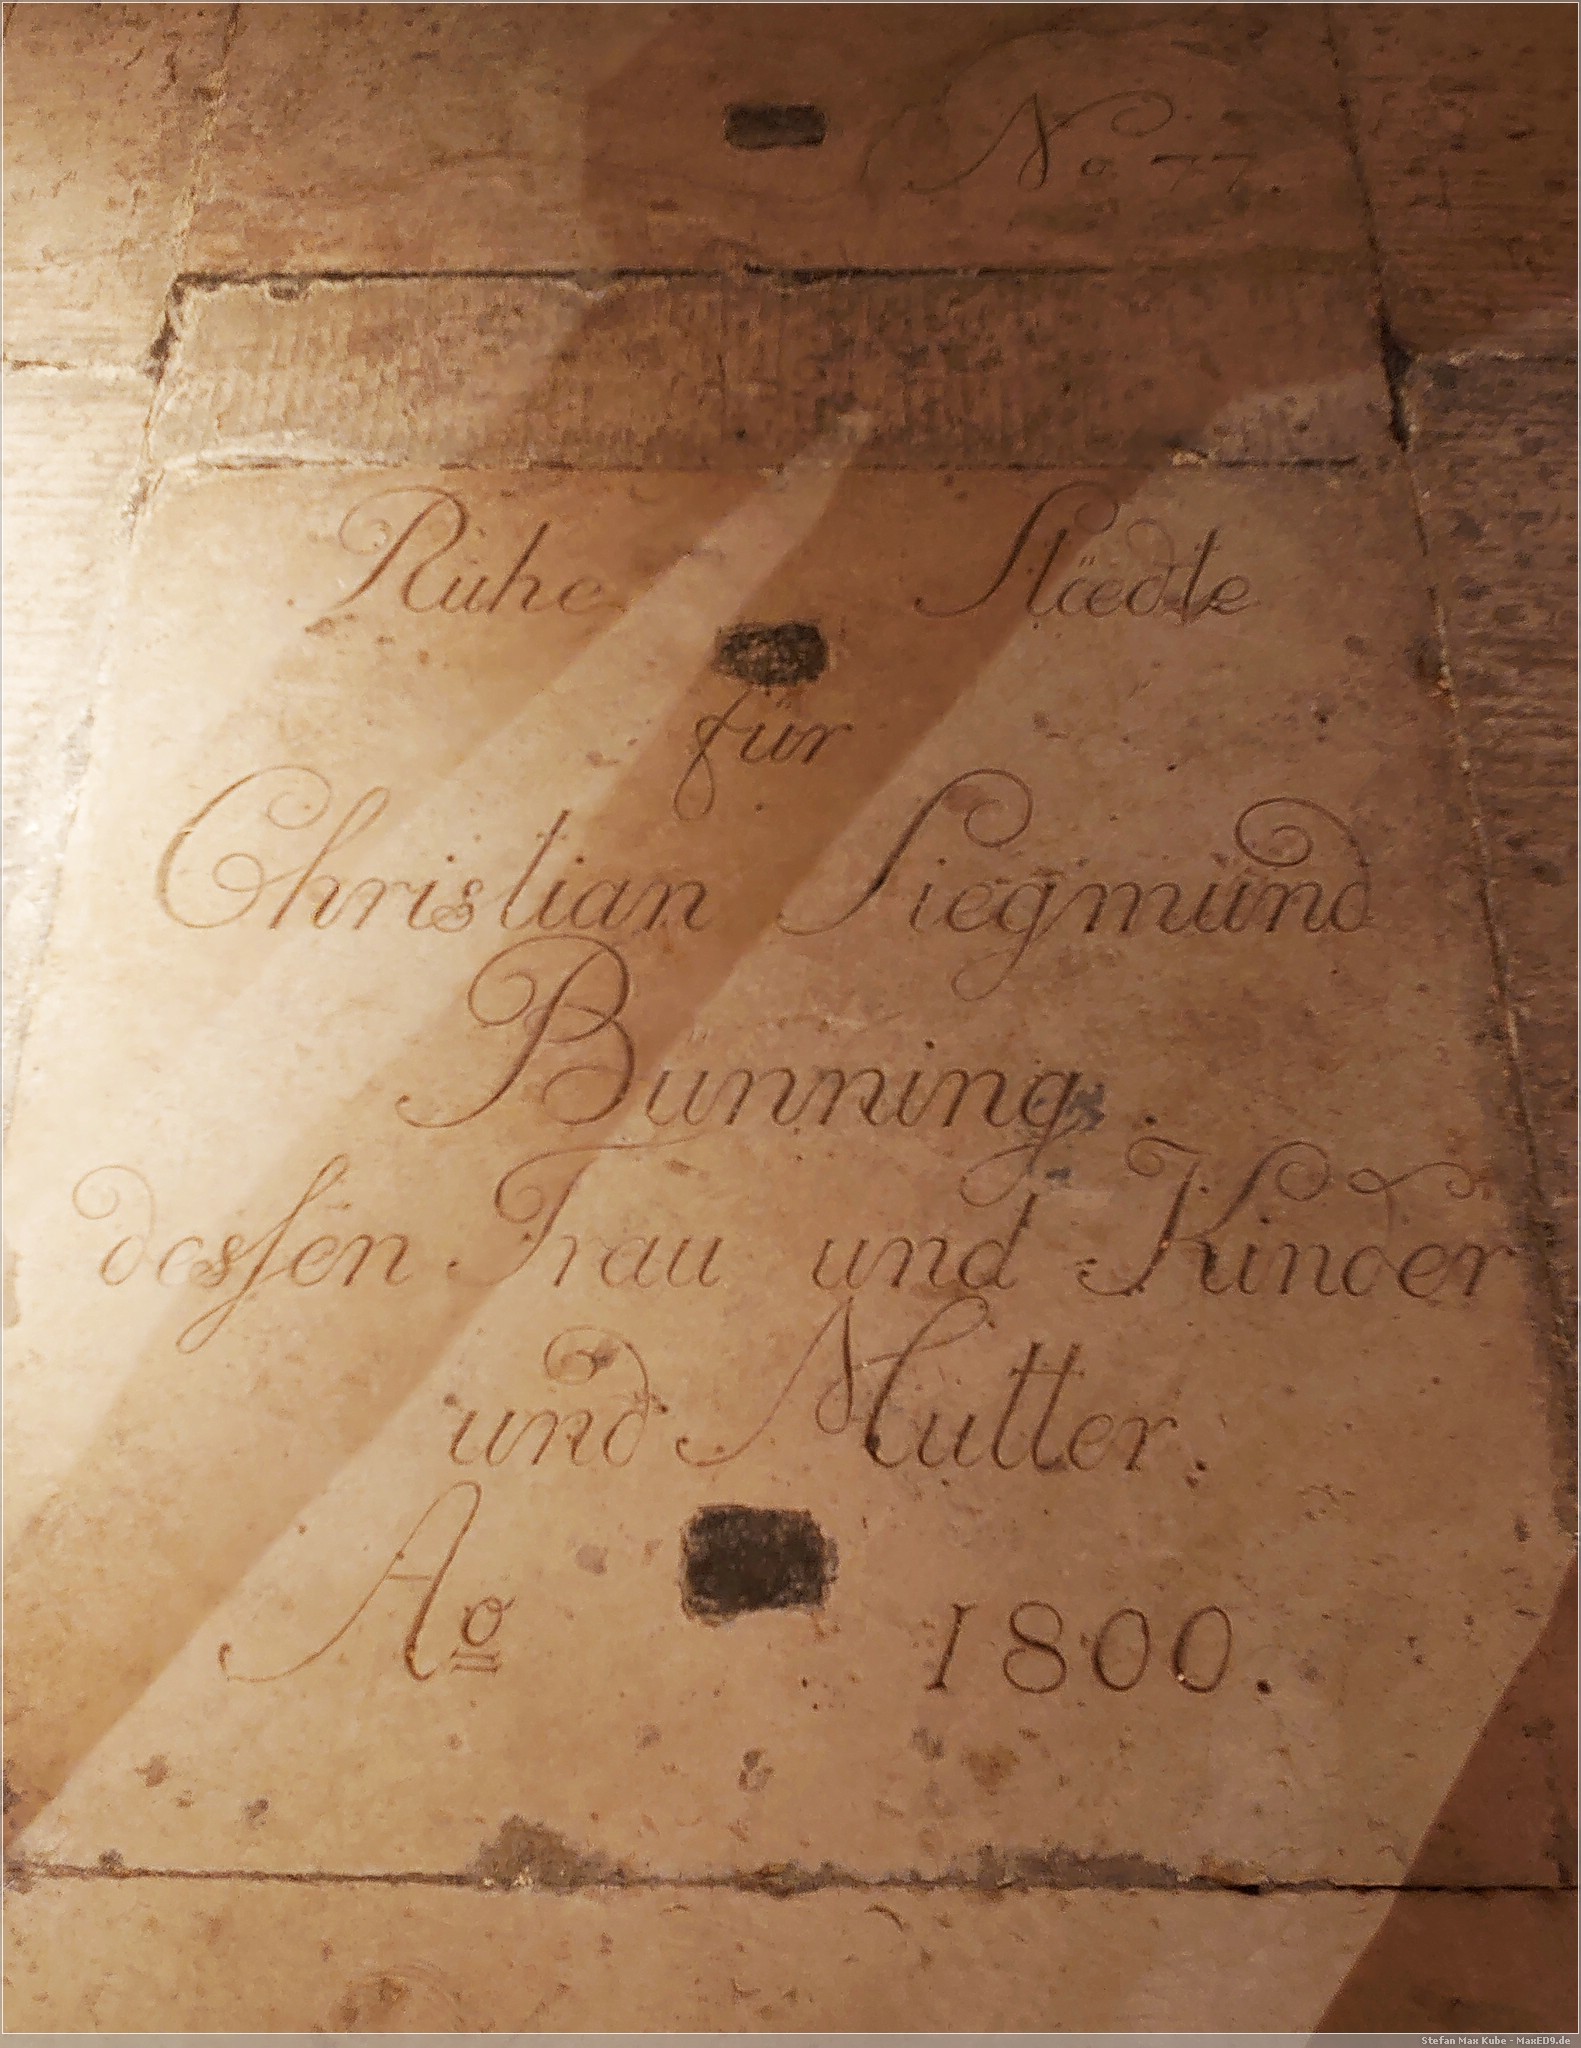 No 77.
Rühe Stäedte
für
Christian Siegmünd
Bünning.
desSen Frau und Kinder
und Mutter.
Ao 1800.
Stefan Max Kube - MaxED9.de